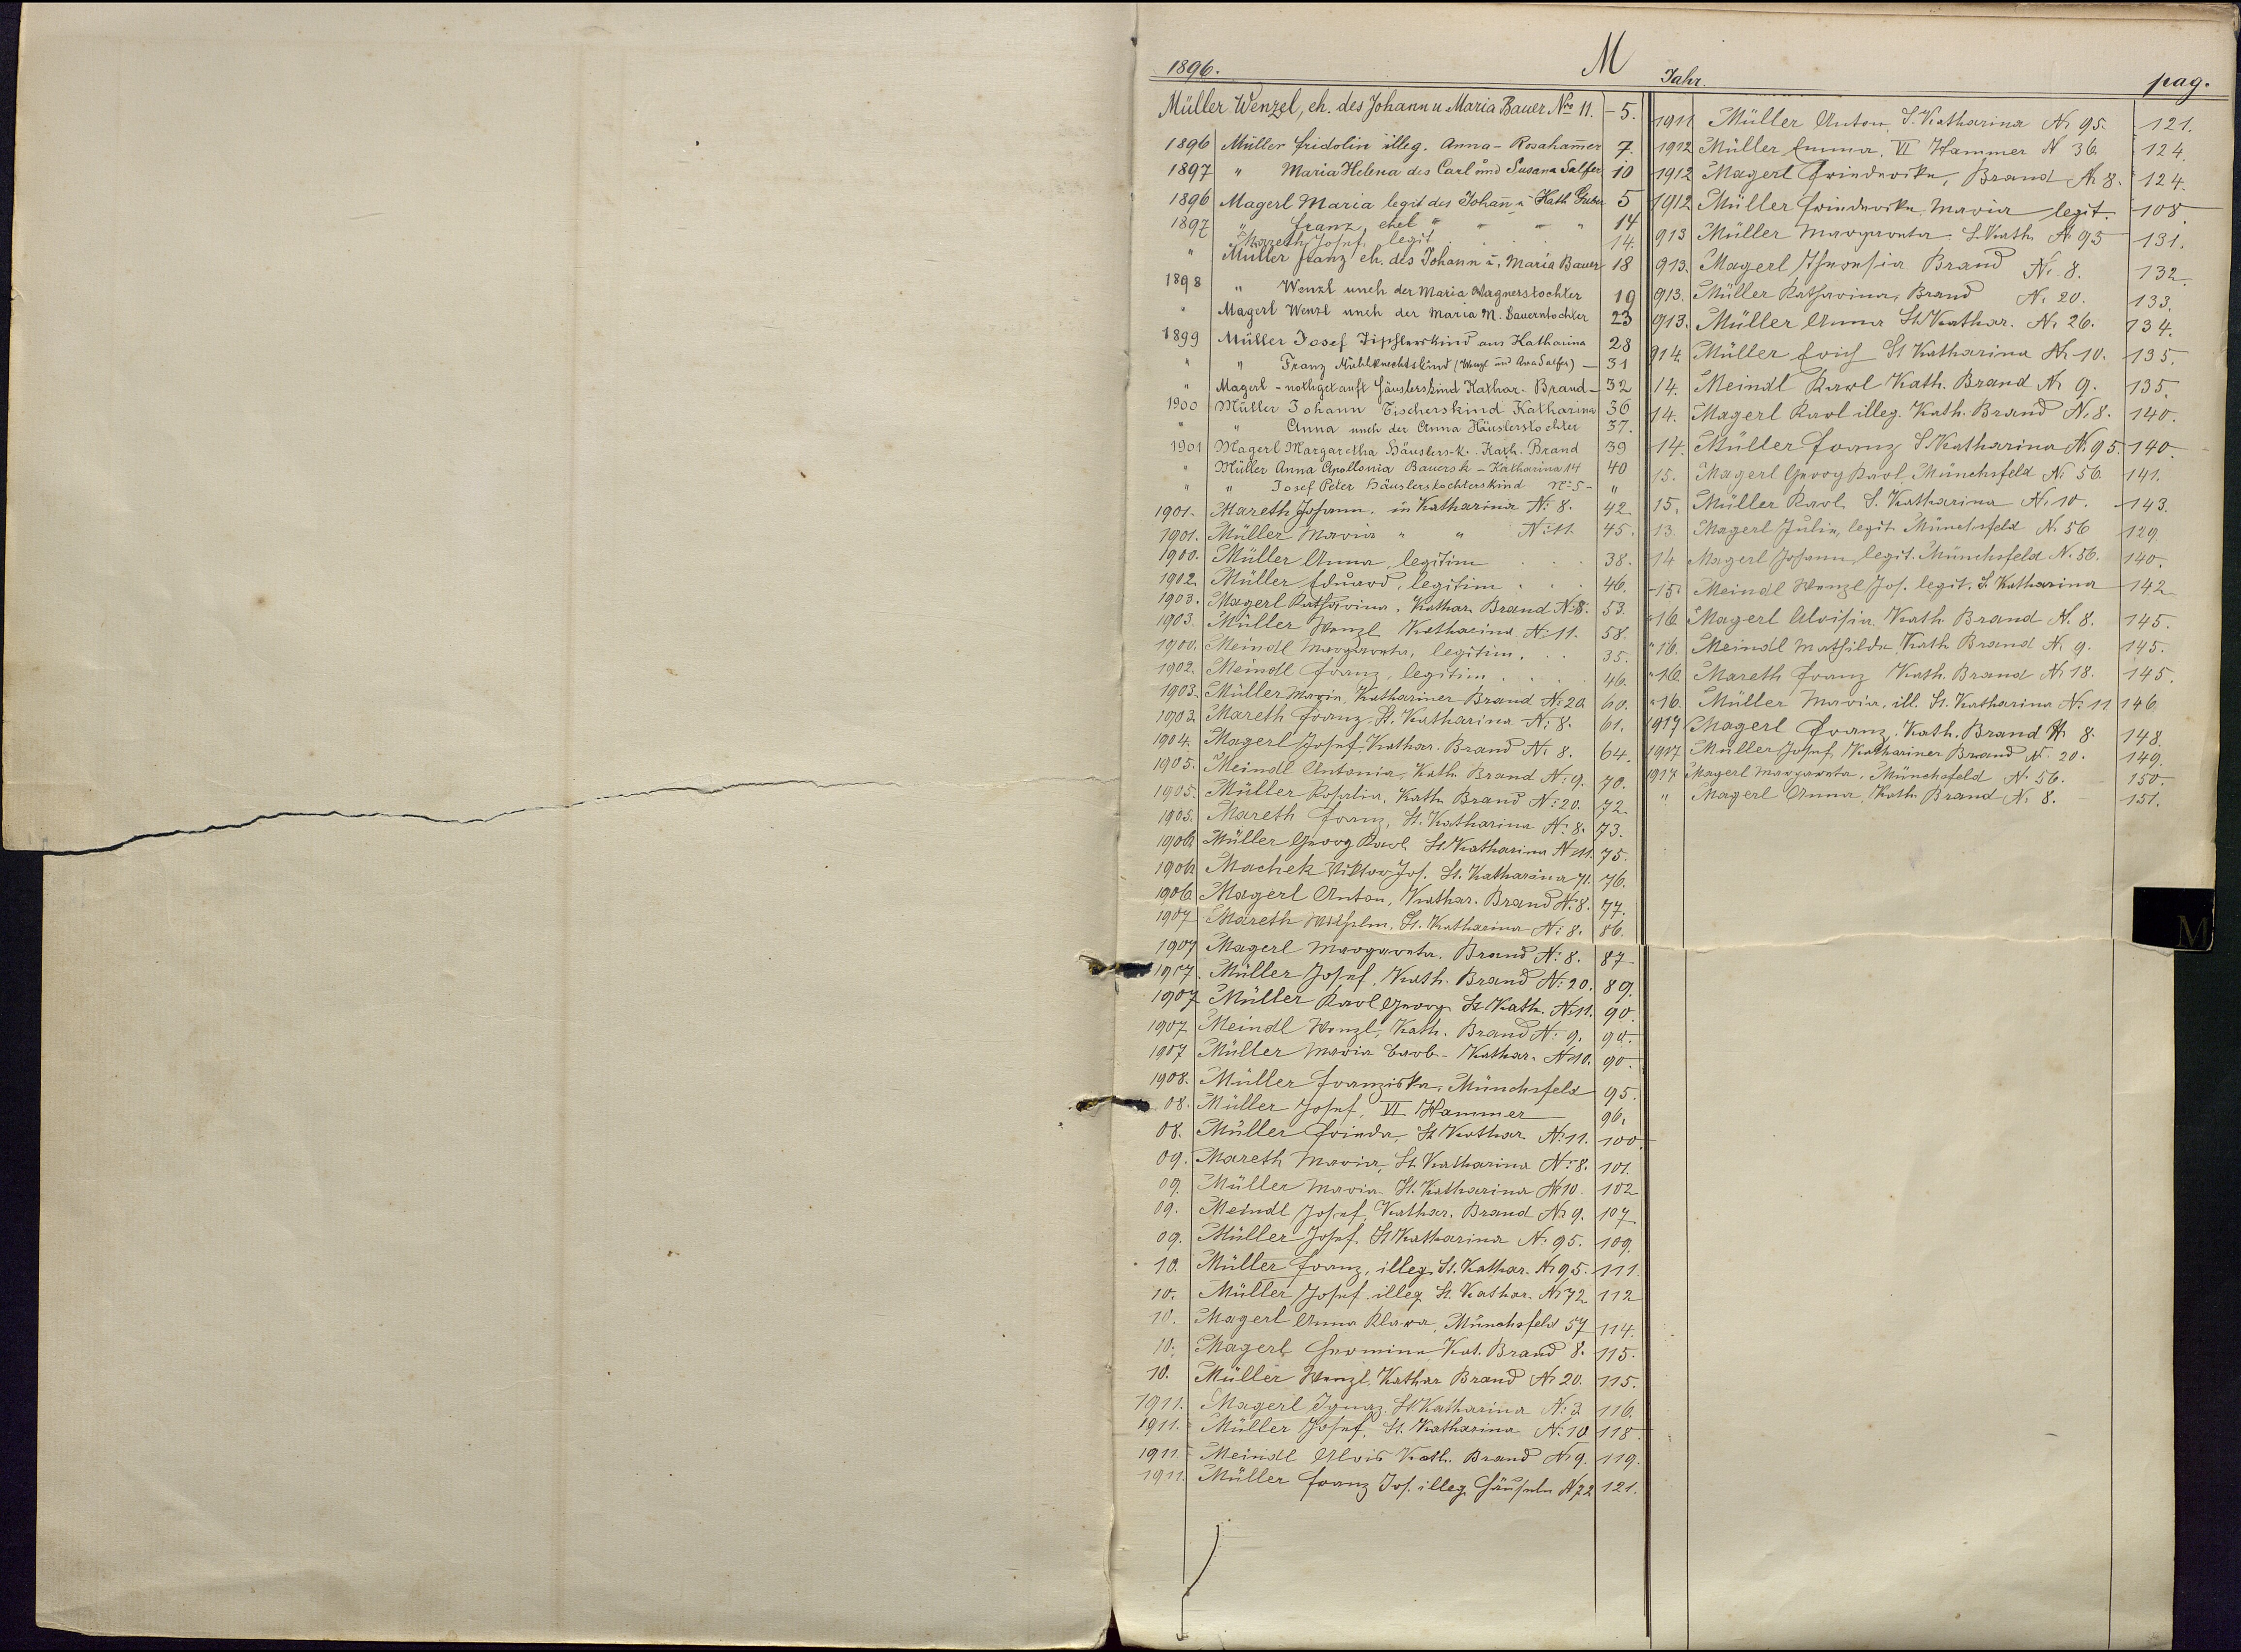 1896.
M
Müller Wenzel, eh. des Johann u Maria Bauer No 11. - 5.
1896 Müller Fridolin illeg. Anna - Rosaham̄er 7.
1897 " Maria Helena des Carl und Susana Salfer 10
1896 Magerl Maria legit des Johan̄ u Kath 5
1897 " Franz, ehel " " " 14
" Mareth Josef, legit . . . 14.
" Müller Franz eh. des Johann u. Maria Bauer 18
1898 " Wenzl uneh der Maria Wagnerstochter 19
" Magerl Wenzl uneh der Maria M. Bauerntochter 23
1899 Müller Josef Tischlerskind aus Katharina 28
" " Franz Mühlknechtskind (Wenzl und Salfer) - 31
" Magerl - nothgetauft Häuslerskind Kathar. Brand - 32
1900 Müller Johann Tischerskind Katharina 36
" " Anna uneh der Anna Häuslerstochter 37.
1901 Magerl Margaretha Häuslers-k. Kath. Brand 39
" Müller Anna Apollonia Bauersk - Katharina 14 40
" " Josef Peter Häuslerstochterskind No 5 - "
1901. Mareth Johann, in Katharina N: 8. 42
1901. Müller Maria " " N: 11. 45.
1900. Müller Anna, legitim . . . 38.
1902. Müller Eduard, legitim . . . 46.
1903. Magerl Katharina, Kathar. Brand N: 8. 53.
1903. Müller Wenzl Katharina N: 11. 58.
1900. Meindl Margareta, legitim. . . 35.
1902. Meindl Franz, legitim . . . . 46.
1903. Müller Maria, Kathariner Brand N: 20 60.
1903. Mareth Franz St. Katharina N: 8. 61.
1904. Magerl Josef, Kathar. Brand N: 8. 64.
1905. Meindl Antonia, Kath. Brand N: 9. 70.
1905. Müller Rosalia, Kath. Brand N: 20. 72
1905. Mareth Franz, St. Katharina N: 8. 73.
1906. Müller Georg Karl St. Katharina N: 11. 75.
1906. Machek Viktor Jos. St. Katharina 71. 76.
1906. Magerl Anton, Kathar. Brand N: 8. 77.
1907 Mareth Wilhelm, St. Katharina N: 8. 86.
1907 Magerl Margareta, Brand N: 8. 87
1907. Müller Josef, Kath. Brand N: 20. 89.
1907 Müller Karl Georg St. Kath. N: 11. 90.
1907 Meindl Wenzl, Kath. Brand N: 9. 90.
1907 Müller Maria Barb. - Kathar. N: 10. 90.
1908. Müller Franziska, Münchsfeld 95.
08. Müller Josef, VI Hammer 96.
08. Müller Frieda, St. Kathar. N: 11. 100.
09. Mareth Maria, St. Katharina N: 8. 101.
09. Müller Maria St. Katharina N: 10. 102
09. Meindl Josef, Kathar. Brand N: 9. 107
09. Müller Josef St. Katharina N: 95. 109.
10. Müller Franz, illeg. St. Kathar. N: 95. 111.
10. Müller Josef illeg. St. Kathar. N: 72 112
10. Magerl Anna Klara, Münchsfeld 57 114.
10. Magerl Hermine Kat. Brand 8. 115.
10. Müller Wenzl, Kathar Brand N: 20. 115.
1911. Magerl Ignaz St. Katharina N: 3. 116.
1911. Müller Josef, St. Katharina N: 10 118
1911. Meindl Alois Kath. Brand N: 9. 119.
1911. Müller Franz Jos. illeg. N 72 121.
Jahr. pag.
1911 Müller Anton, S. Katharina N: 95. 121.
1912 Müller Emma, VI Hammer N 36. 124.
1912 Magerl Friederike, Brand N: 8. 124.
1912. Müller Friederike Maria legit. 108.
913 Müller Margareta S. Kath. N: 95 131.
913. Magerl Theresia Brand N: 8. 132.
913. Müller Katharina, Brand N: 20. 133.
913. Müller Anna St. Kathar. N: 26. 134.
914. Müller Erich St Katharina N: 10. 135.
14. Meindl Karl Kath. Brand N: 9. 135.
14. Magerl Karl illeg. Kath. Brand N: 8. 140.
14. Müller Franz S. Katharina N: 95. 140.
15. Magerl Georg Karl, Münchsfeld N: 56. 141.
15. Müller Karl, S. Katharina N: 10. 143.
13. Magerl Julie, legit. Münchsfeld N: 56 129.
14 Magerl Johann, legit. Münchsfeld N: 56. 140.
15. Meindl Wenzl Jos. legit. S. Katharina 142
" 16. Magerl Aloisia, Kath. Brand N: 8. 145.
" 16. Meindl Mathilde, Kath. Brand N: 9. 145.
" 16. Mareth Franz Kath. Brand N: 18. 145.
" 16. Müller Maria, ill. St. Katharina N: 11. 146.
1917 Magerl Franz, Kath. Brand N: 8. 148.
1917 Müller Josef, Kathariner Brand N: 20. 149.
1917 Magerl Margareta, Münchsfeld N: 56. 150.
" Magerl Anna, Kath. Brand N: 8. 151.
M